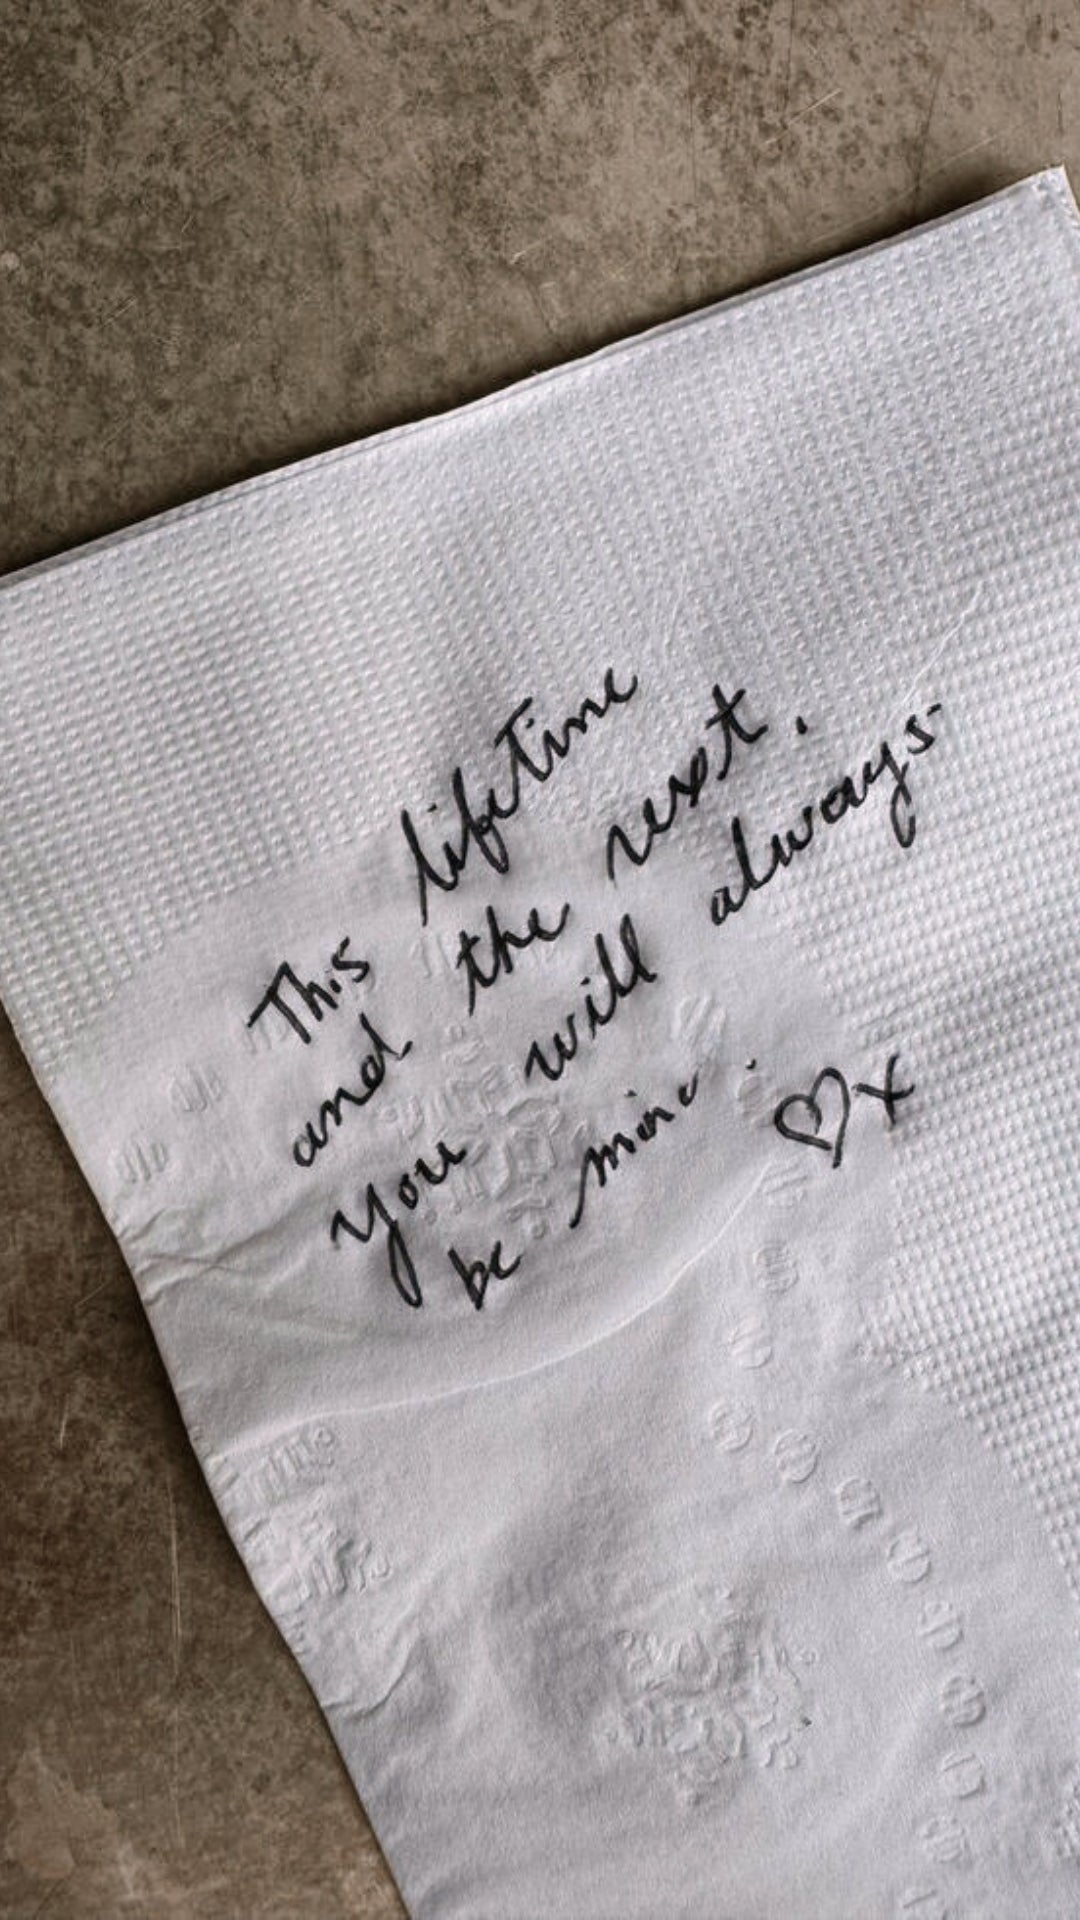 This lifetime
and the next.
you will always
be mine. ♡x